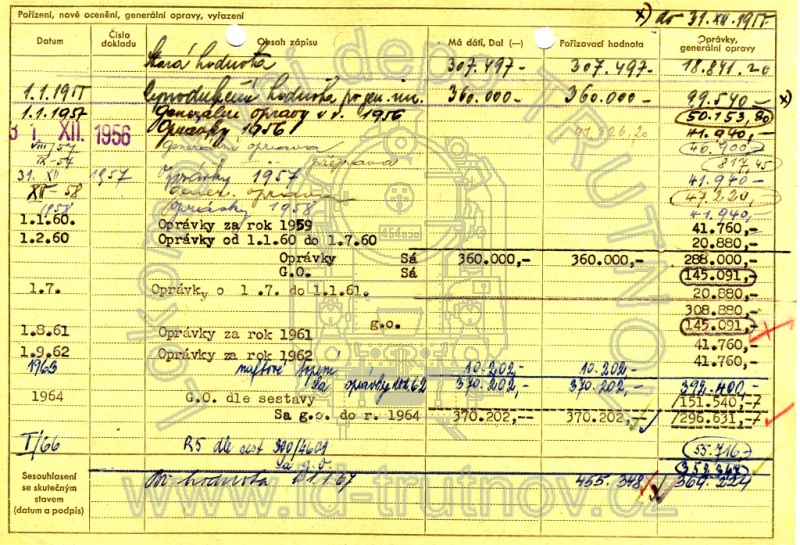 Pořízení, nové ocenění, generální opravy, vyřazení
x) do 31. XII. 1955
Datum Číslo dokladu Obsah zápisu Má dáti, Dal (—) Pořizovací hodnota Oprávky, generální opravy
Stará hodnota 307.497- 307.497- 18.841.20
1.1.1955 Reprodukční hodnota po gen. inv. 360.000- 360.000- 99.540- x)
1.1.1957 Generální opravy v r. 1956 50.153,80
31. XII. 1956 Oprávky 1956 41.940,-
VIII/57 Generální oprava 46.900,-
IX-57 příprava 817,45
31. XII 1957 Oprávky 1957 41.940-
XII-58 Gener. oprava 47.220,-
1958 Oprávky 1958 41.940,-
1.1.60. Oprávky za rok 1959 41.760,-
1.2.60 Oprávky od 1.1.60 do 1.7.60 20.880,-
Oprávky Sá 360.000,- 360.000,- 288.000,-
G.O. Sá 145.091,-
1.7. Oprávky o 1.7. do 1.1.61. 20.880,-
308.880,-
g.o. 145.091,-
1.8.61 Oprávky za rok 1961 41.760,-
1.9.62 Oprávky za rok 1962 41.760,-
1963 naftové topení 10.202,- 10.202,-
Sá oprávky 370.202,- 370.202,- 392.400,-
1964 G.O. dle sestavy 151.540,-
Sa g.o. do r. 1964 370.202,- 370.202,- 296.631,-
I/66 R5 dle sest 300/4601 55.716
Sá g.o. 352.347
Sesouhlasení se skutečným stavem (datum a podpis)
hodnota 1.1.67 455.348 364.224
464 030
lokomotivní depo TRUTNOV
www.ld-trutnov.cz